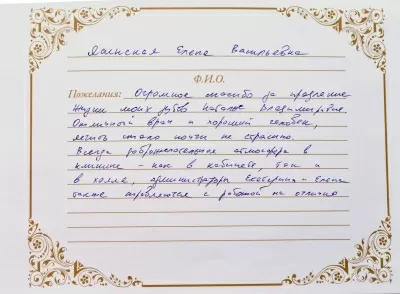 Елена Васильевна
Ф.И.О.
Пожелания: Огромное спасибо за продление
жизни моих зубов Наталье Владимировне
Отличный врач и хороший человек,
лечить стало почти не страшно.
Всегда доброжелательная атмосфера в
клинике - как в кабинете, так и
в холле, администраторы Екатерина и Елена
также справляются с работой на отлично